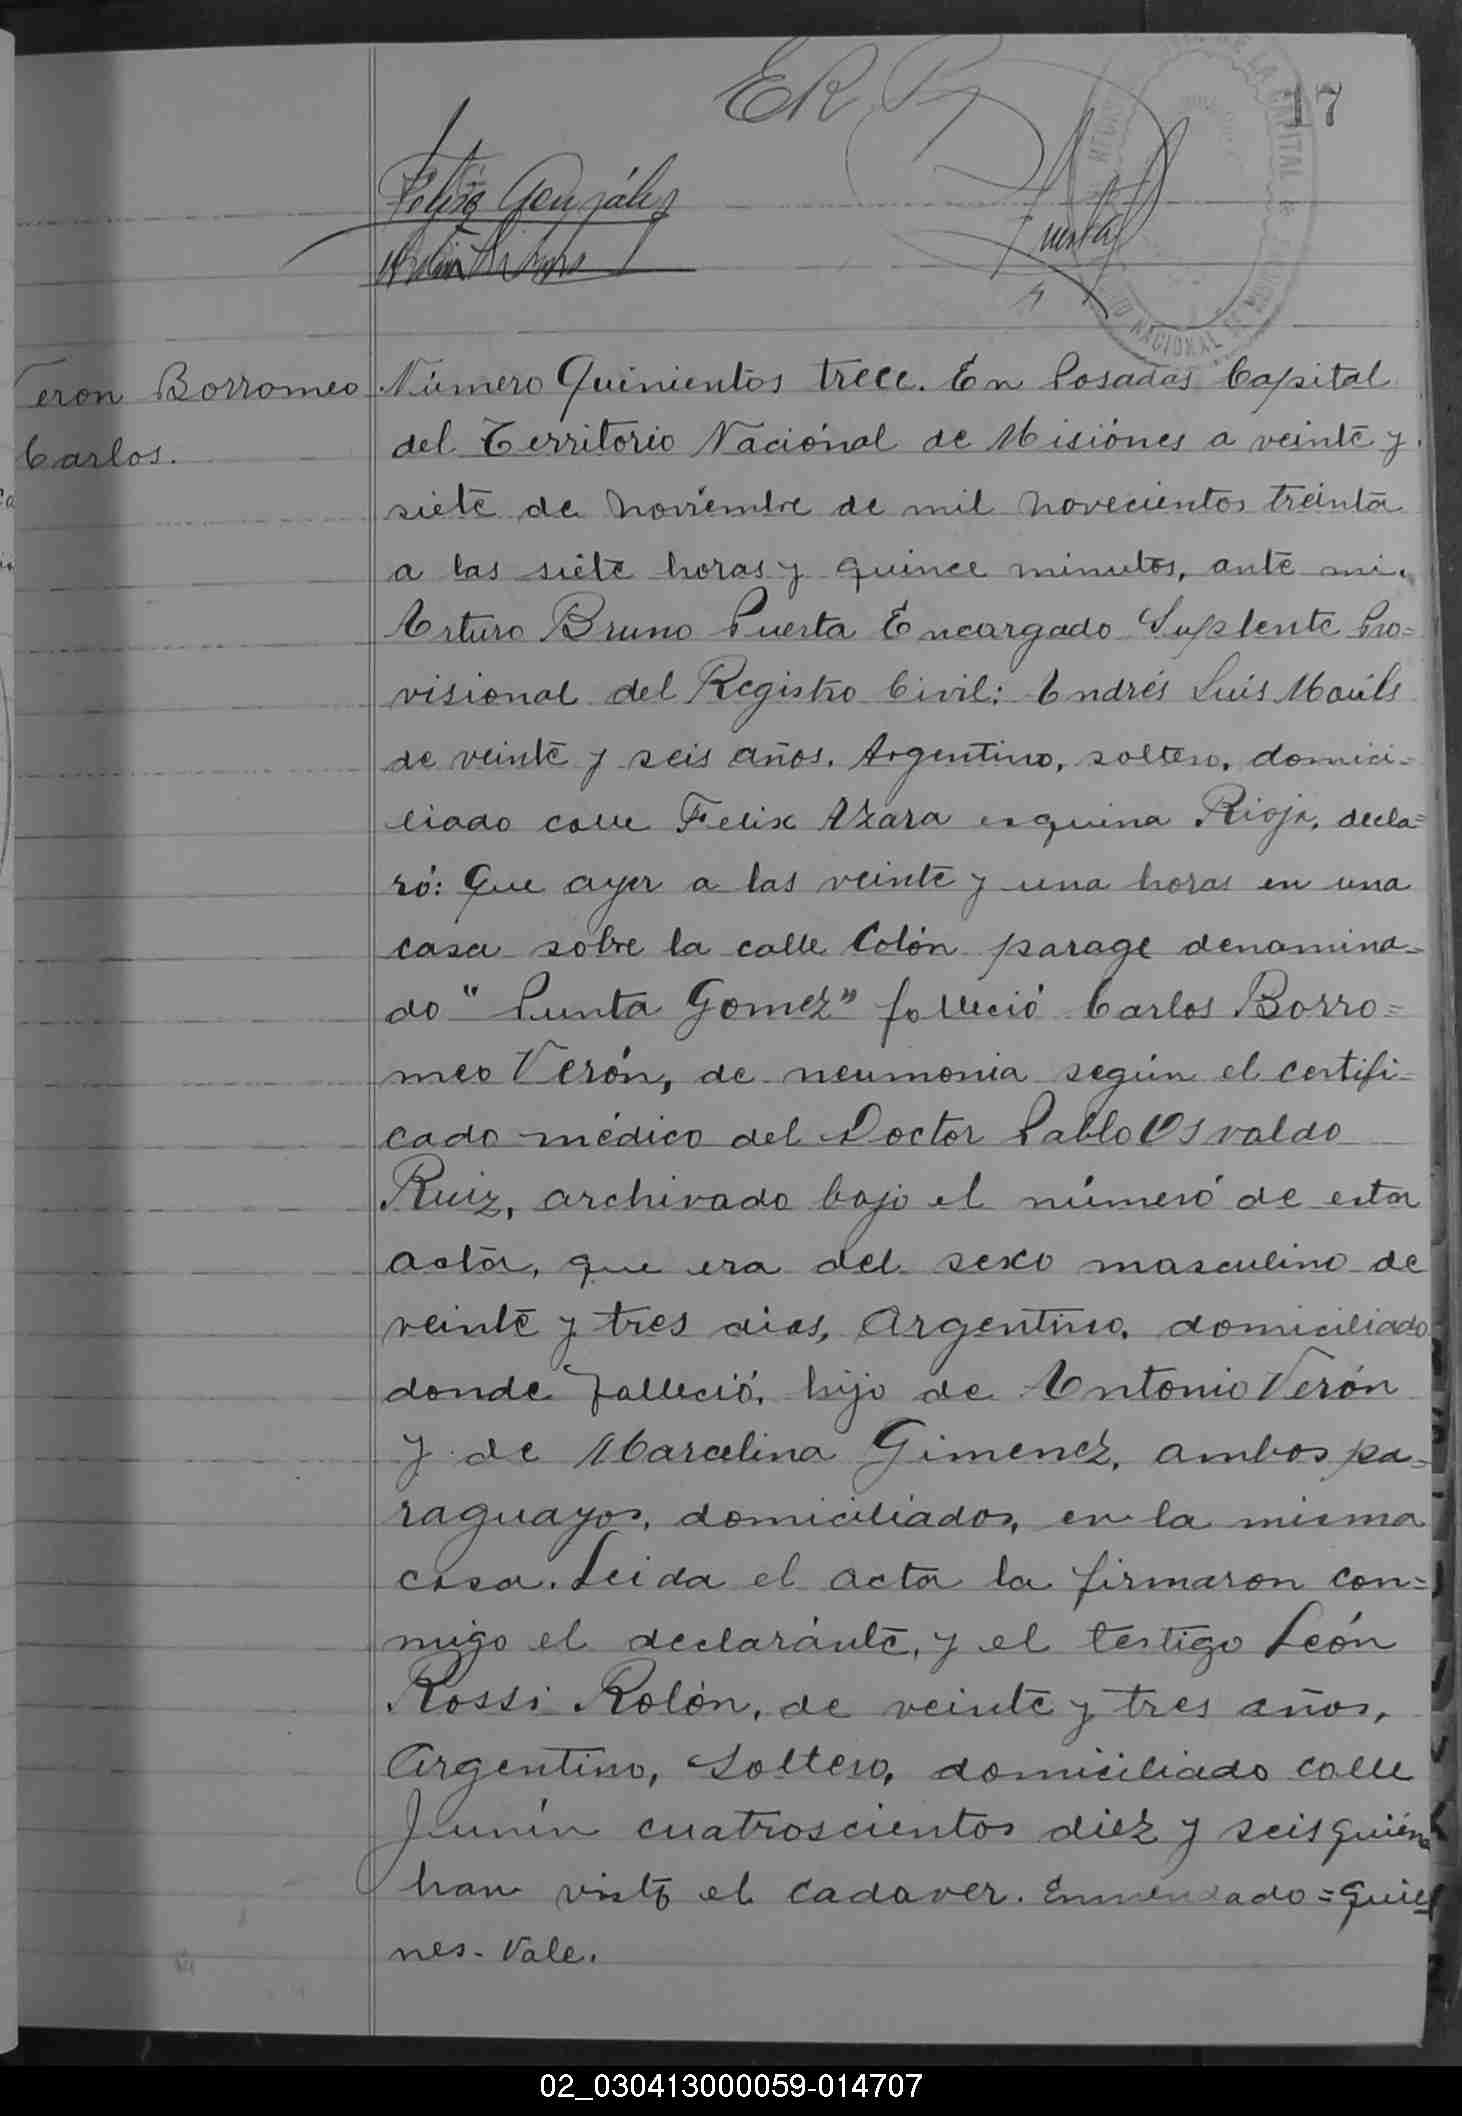 17
E R P
Felisa González
Puerta
NACIONAL DE
Veron Borromeo
Carlos.
Número Quinientos trece. En Posadas Capital
del Territorio Naciónal de Misiónes a veinte y
siete de Noviembre de mil novecientos treinta
a las siete horas y quince minutos, ante mi.
Arturo Bruno Puerta Encargado Suplente Pro=
visional del Registro Civil: Andrés Luis
de veinte y seis años. Argentino, soltero, domici-
liado calle Felix Azara esquina Rioja, decla=
ró: Que ayer a las veinte y una horas en una
casa sobre la calle Colón parage denomina-
do "Punta Gomez" falleció Carlos Borro=
meo Verón, de neumonia según el certifi-
cado médico del Doctor Pablo Osvaldo
Ruiz, archivado bajo el número de esta
acta, que era del sexo masculino de
veinte y tres dias, Argentino, domiciliado
donde falleció, hijo de Antonio Verón
y de Marcelina Gimenez, ambos pa-
raguayos, domiciliados, en la misma
casa. Leida el acta la firmaron con=
migo el declaránte, y el testigo León
Rossi Rolón, de veinte y tres años,
Argentino, soltero, domiciliado calle
Junín cuatroscientos diez y seis quiénes
han visto el cadaver. Enmendado=quie
nes-Vale.
02_030413000059-014707